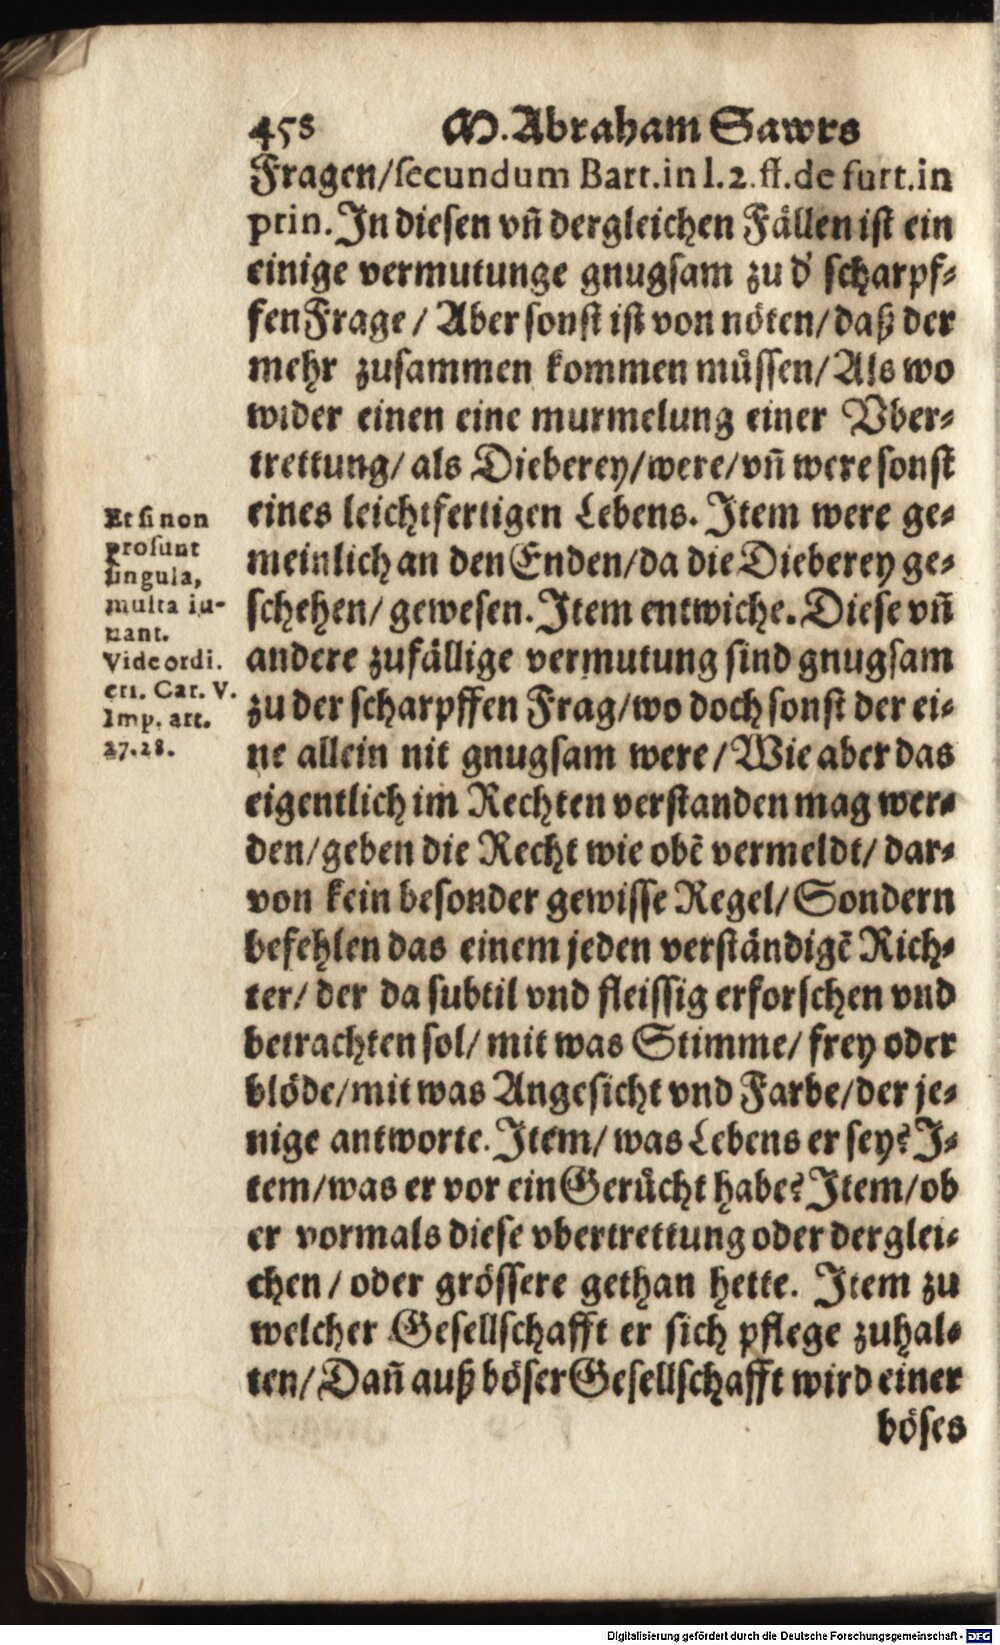 458 M. Abraham Sawrs
Fragen/secundum Bart.in l.2.ff.de furt.in
prin. In diesen vn̄ dergleichen Fällen ist ein
einige vermutunge gnugsam zu d' scharpf-
fen Frage / Aber sonst ist von nöten/ daß der
mehr zusammen kommen müssen/ Als wo
wider einen eine murmelung einer Vber-
trettung/ als Dieberey/were/vn̄ were sonst
eines leichtfertigen Lebens. Item were ge-
meinlich an den Enden/da die Dieberey ge-
schehen/ gewesen. Item entwiche. Diese vn̄
andere zufällige vermutung sind gnugsam
zu der scharpffen Frag/wo doch sonst der ei-
ne allein nit gnugsam were/ Wie aber das
eigentlich im Rechten verstanden mag wer-
den/geben die Recht wie obē vermeldt/ dar-
von kein besonder gewisse Regel/ Sondern
befehlen das einem jeden verständigē Rich-
ter/ der da subtil vnd fleissig erforschen vnd
betrachten sol/ mit was Stimme/ frey oder
blöde/mit was Angesicht vnd Farbe/der je-
nige antworte. Item/ was Lebens er sey? I-
tem/was er vor ein Gerücht habe? Item/ob
er vormals diese vbertrettung oder derglei-
chen / oder grössere gethan hette. Item zu
welcher Gesellschafft er sich pflege zuhal-
ten/ Dan̄ auß böser Gesellschafft wird einer
böses
Et si non
prosunt
singula,
multa iu-
uant.
Vide ordi.
cri. Car. V.
Imp. art.
27.28.
Digitalisierung gefördert durch die Deutsche Forschungsgemeinschaft - DFG